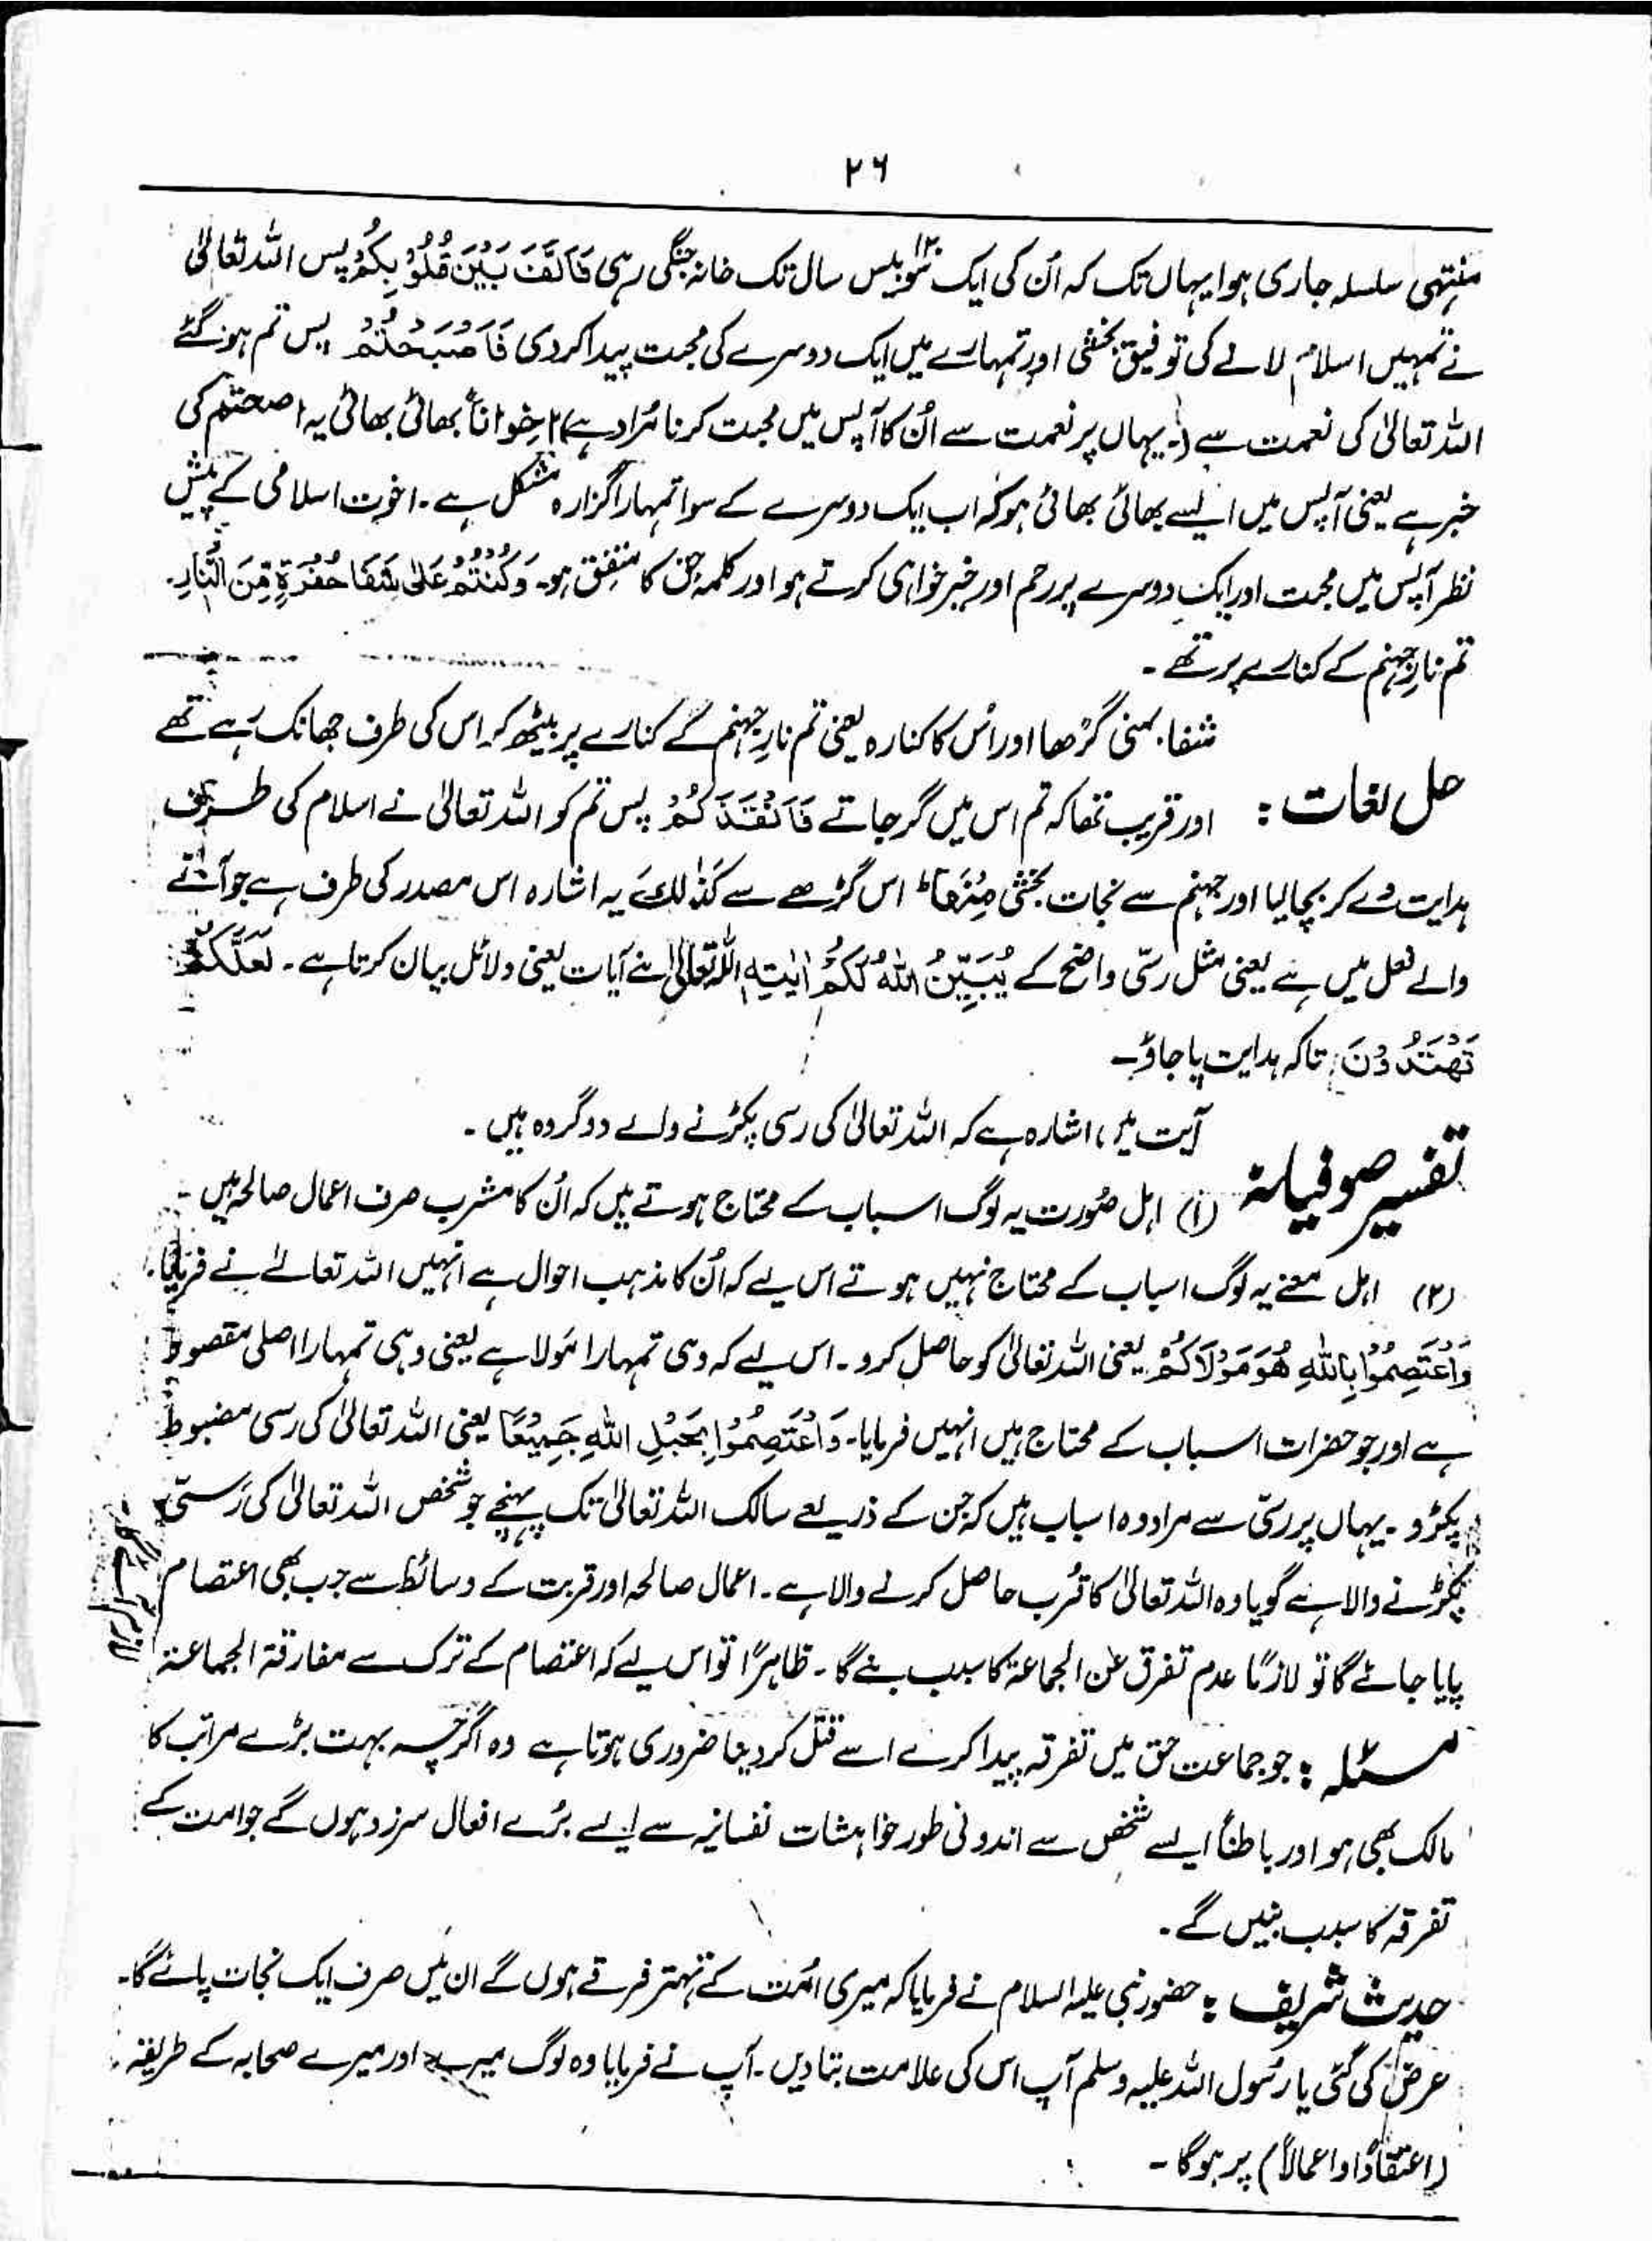 ۲۶
منتہی سلسلہ جاری ہوا یہاں تک کہ اُن کی ایک سو بیس ۱۲۰ سال تک خانہ جنگی رہی فَاَلَّفَ بَيْنَ قُلُوْبِكُمْ پس اللہ تعالیٰ
نے تمہیں اسلام لانے کی توفیق بخشی اور تمہارے میں ایک دوسرے کی محبت پیدا کر دی فَاَصْبَحْتُمْ پس تم ہو گئے
اللہ تعالیٰ کی نعمت سے (۔ یہاں پر نعمت سے اُن کا آپس میں محبت کرنا مُراد ہے) اِخْوَانًا بھائی بھائی یہ اصحتم کی
خبر ہے یعنی آپس میں ایسے بھائی بھائی ہو کہ اب ایک دوسرے کے سوا تمہارا گزارہ مشکل ہے ۔ اخوت اسلامی کے پیش
نظر آپس میں محبت اور ایک دوسرے پر رحم اور خیر خواہی کرتے ہو اور کلمۂ حق کا متفق ہو۔ وَكُنْتُمْ عَلٰى شَفَا حُفْرَةٍ مِّنَ النَّارِ۔
تم نارِ جہنم کے کنارے پر تھے ۔
شفا بمنی گڑھا اور اُس کا کنارہ یعنی تم نارِ جہنم کے کنارے پر بیٹھ کر اس کی طرف جھانک رہے تھے
حل لغات : اور قریب تھا کہ تم اس میں گر جاتے فَاَنْقَذَكُمْ پس تم کو اللہ تعالیٰ نے اسلام کی طرف
ہدایت دے کر بچا لیا اور جہنم سے نجات بخشی مِنْهَا ط اس گڑھے سے كَذٰلِكَ یہ اشارہ اس مصدر کی طرف ہے جو آنے
والے فعل میں ہے یعنی مثل رسّی واضح کے يُبَيِّنُ اللّٰهُ لَكُمْ اٰيٰتِهٖ اللہ تعالیٰ اپنے آیات یعنی دلائل بیان کرتا ہے ۔ لَعَلَّكُمْ
تَهْتَدُوْنَ تاکہ ہدایت پا جاؤ۔
آیت میں اشارہ ہے کہ اللہ تعالیٰ کی رسی پکڑنے والے دو گروہ ہیں ۔
تفسیر صوفیانہ (۱) اہل صُورت یہ لوگ اسباب کے محتاج ہوتے ہیں کہ اُن کا مشرب صرف اعمال صالحہ ہیں ۔
(۲) اہل معنے یہ لوگ اسباب کے محتاج نہیں ہوتے اس لیے کہ اُن کا مذہب احوال ہے انہیں اللہ تعالےٰ نے فرمایا۔
وَاعْتَصِمُوْا بِاللّٰهِ هُوَ مَوْلَاكُمْ یعنی اللہ تعالیٰ کو حاصل کرو ۔ اس لیے کہ وہی تمہارا مَولا ہے یعنی وہی تمہارا اصلی مقصود
ہے اور جو حضرات اسباب کے محتاج ہیں انہیں فرمایا۔ وَاعْتَصِمُوْا بِحَبْلِ اللّٰهِ جَمِيْعًا یعنی اللہ تعالیٰ کی رسی مضبوط
پکڑو ۔ یہاں پر رسّی سے مراد وہ اسباب ہیں کہ جن کے ذریعے سالک اللہ تعالیٰ تک پہنچے جو شخص اللہ تعالیٰ کی رَسّی
پکڑنے والا ہے گویا وہ اللہ تعالیٰ کا قُرب حاصل کرنے والا ہے ۔ اعمال صالحہ اور قربت کے وسائط سے جب بھی اعتصام
پایا جائے گا تو لازمًا عدم تفرق عن الجماعۃ کا سبب بنے گا ۔ ظاہرًا تو اس لیے کہ اعتصام کے ترک سے مفارقۃ الجماعۃ
مسئلہ : جو جماعت حق میں تفرقہ پیدا کرے اسے قتل کر دینا ضروری ہوتا ہے وہ اگرچہ بہت بڑے مراتب کا
مالک بھی ہو اور باطنًا ایسے شخص سے اندونی طور خواہشات نفسانیہ سے ایسے بُرے افعال سرزد ہوں گے جو امت کے
تفرقہ کا سبب بنیں گے ۔
حدیث شریف : حضور نبی علیہ السلام نے فرمایا کہ میری امت کے تہتر فرقے ہوں گے ان میں صرف ایک نجات پائے گا۔
عرض کی گئی یا رسُول اللہ علیہ وسلم آپ اس کی علامت بتا دیں ۔ آپ نے فرمایا وہ لوگ میرے اور میرے صحابہ کے طریقہ
(اعتقادًا و اعمالاً) پر ہوگا ۔